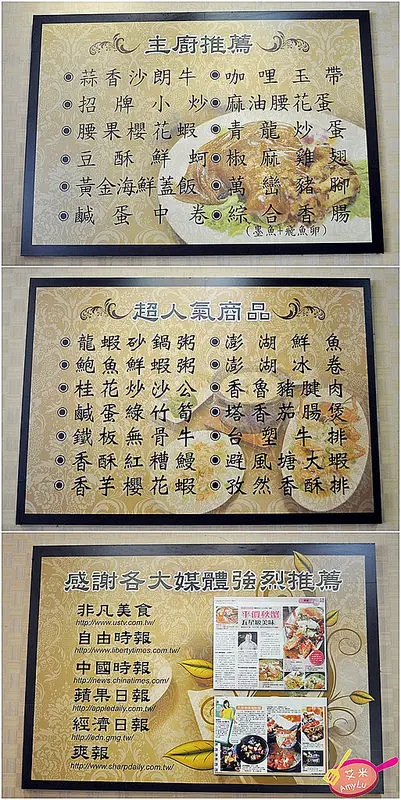 主廚推薦
蒜香沙朗牛
咖哩玉帶
招牌小炒
麻油腰花蛋
腰果櫻花蝦
青龍炒蛋
豆酥鮮蚵
椒麻雞翅
黃金海鮮蓋飯
萬巒豬腳
鹹蛋中卷
綜合香腸
(墨魚+飛魚卵)
超人氣商品
龍蝦砂鍋粥
澎湖鮮魚
鮑魚鮮蝦粥
澎湖冰卷
桂花炒沙公
香魯豬腱肉
鹹蛋綠竹筍
塔香茄腸煲
鐵板無骨牛
台塑牛排
香酥紅糟鰻
避風塘大蝦
香芋櫻花蝦
孜然香酥排
感謝各大媒體強烈推薦
非凡美食
http://www.ustv.com.tw/
自由時報
http://www.libertytimes.com.tw/
中國時報
http://news.chinatimes.com/
蘋果日報
http://appledaily.com.tw/
經濟日報
http://edn.gmg.tw/
爽報
http://www.sharpdaily.com.tw/
平價秋蟹
五星級美味
艾米
AmyLu